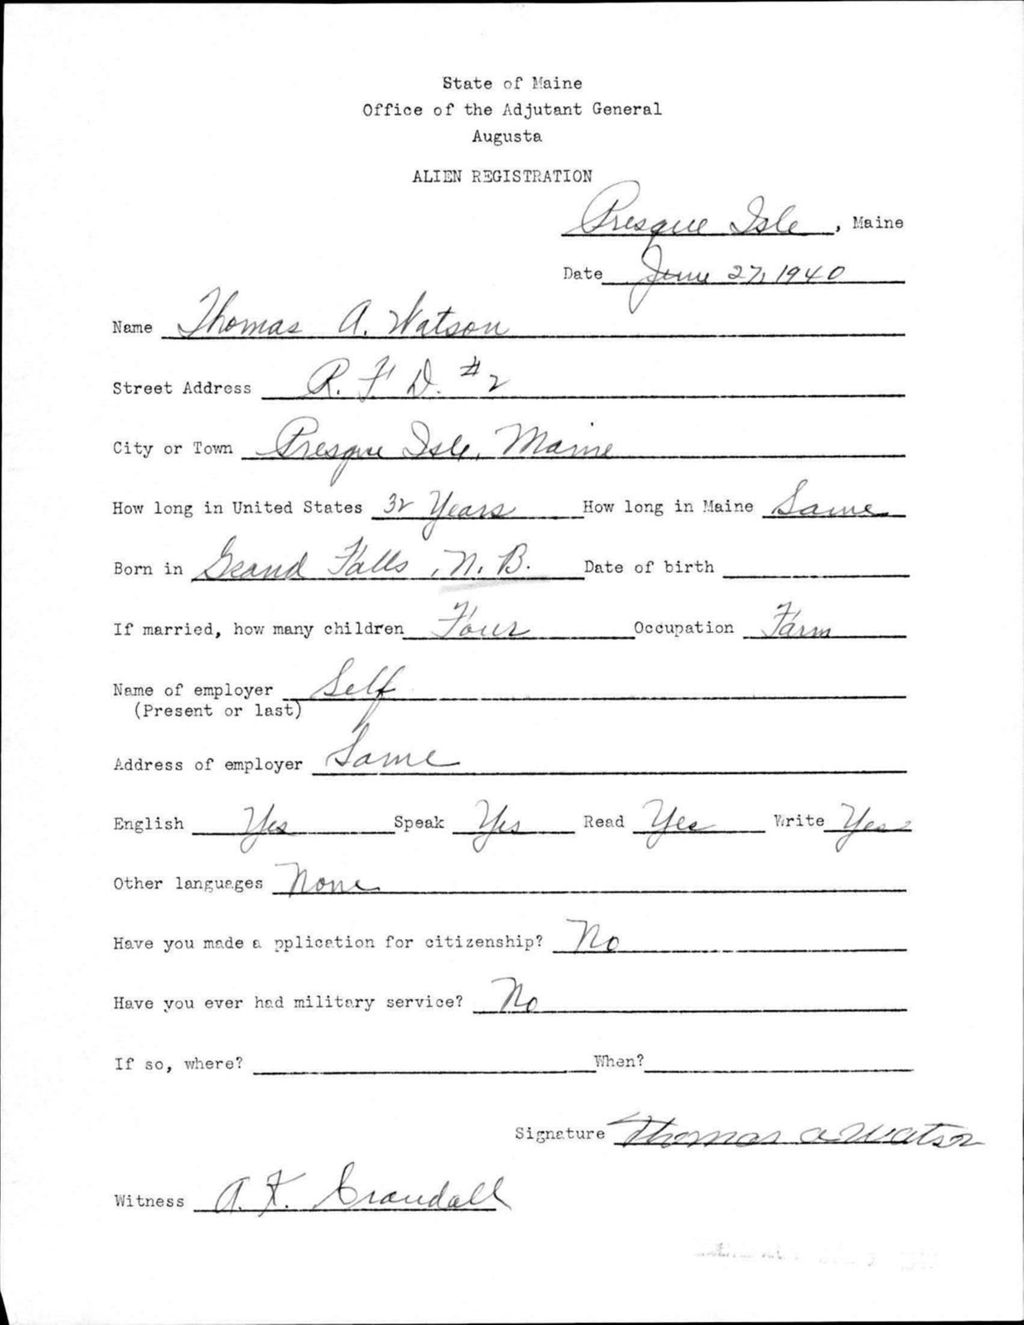 State of Maine
Office of the Adjutant General
Augusta
ALIEN REGISTRATION
Presque Isle, Maine
Date June 27, 1940
Name Thomas A. Watson
Street Address R. F. D. #2
City or Town Presque Isle, Maine
How long in United States 32 Years How long in Maine Same
Born in Grand Falls, N. B. Date of birth
If married, how many children Four Occupation Farm
Name of employer Self
(Present or last)
Address of employer Same
English Yes Speak Yes Read Yes Write Yes
Other languages None
Have you made a pplication for citizenship? No
Have you ever had military service? No
If so, where? When?
Signature Thomas A Watson
Witness A. F. Crandall